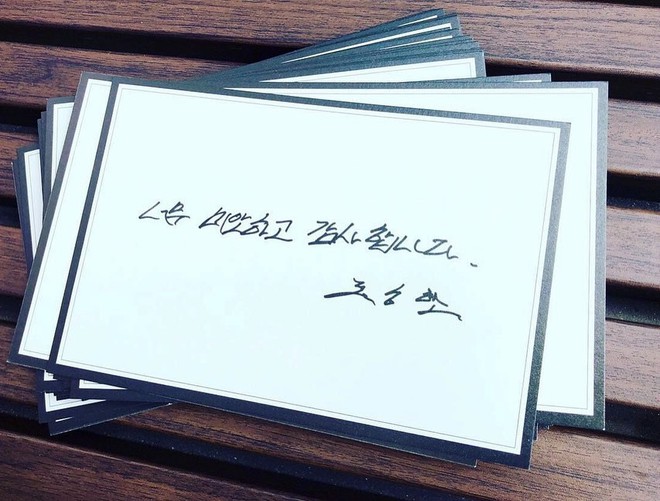 너무 미안하고 감사합니다.
조승환